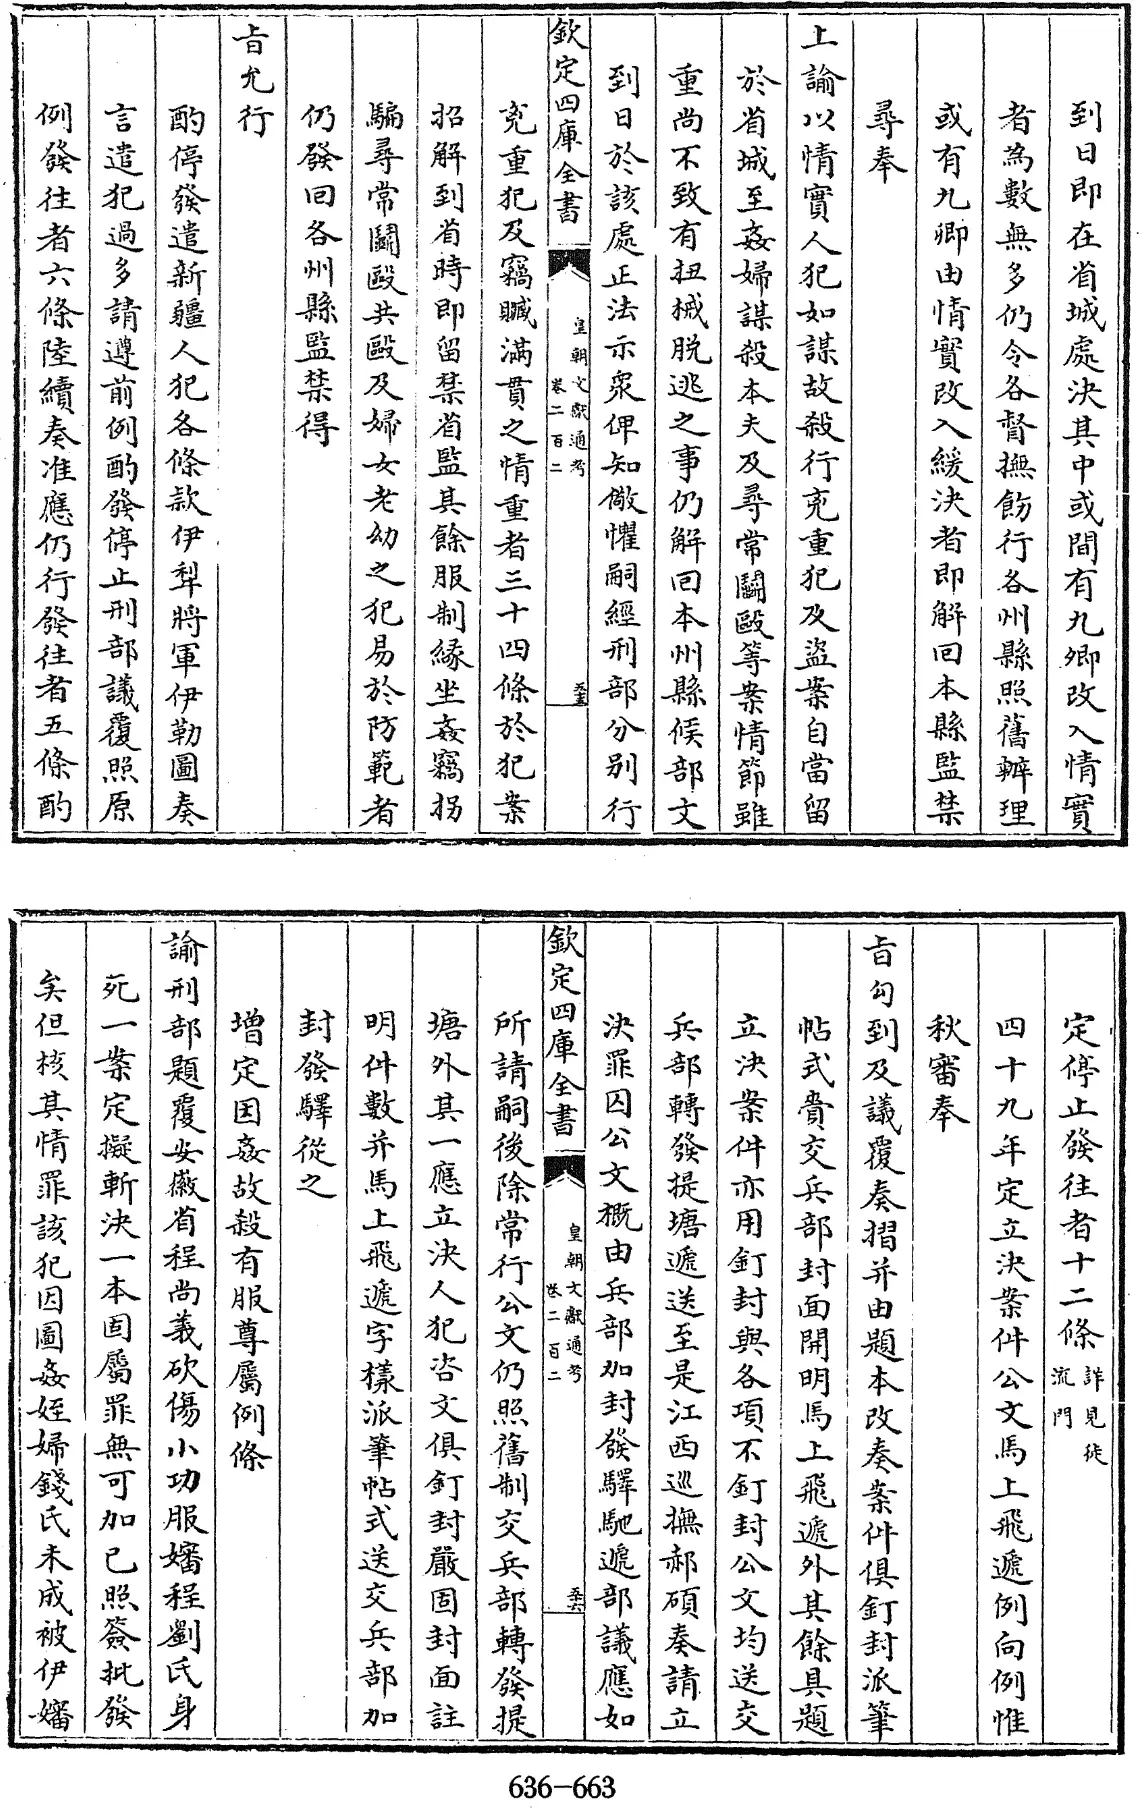 到日即在省城處決其中或間有九卿改入情實
者為數無多仍令各督撫飭行各州縣照舊辦理
或有九卿由情實改入緩決者即解回本縣監禁
尋奉
上諭以情實人犯如謀故殺行兇重犯及盜案自當留
於省城至姦婦謀殺本夫及尋常鬬毆等案情節雖
重尚不致有扭械脫逃之事仍解回本州縣候部文
到日於該處正法示衆俾知儆懼嗣經刑部分別行
欽定四庫全書
皇朝文獻通考
卷二百二
五十五
兇重犯及竊贓滿貫之情重者三十四條於犯案
招解到省時即留禁省監其餘服制緣坐姦竊拐
騙尋常鬬毆共毆及婦女老幼之犯易於防範者
仍發回各州縣監禁得
㫖允行
酌停發遣新疆人犯各條款伊犂將軍伊勒圖奏
言遣犯過多請遵前例酌發停止刑部議覆照原
例發往者六條陸續奏准應仍行發往者五條酌
定停止發往者十二條詳見徒
流門
四十九年定立決案件公文馬上飛遞例向例惟
秋審奉
㫖勾到及議覆奏摺并由題本改奏案件俱釘封派筆
帖式賫交兵部封面開明馬上飛遞外其餘具題
立決案件亦用釘封與各項不釘封公文均送交
兵部轉發提塘遞送至是江西巡撫郝碩奏請立
決罪囚公文概由兵部加封發驛馳遞部議應如
欽定四庫全書
皇朝文獻通考
卷二百二
五十六
所請嗣後除常行公文仍照舊制交兵部轉發提
塘外其一應立決人犯咨文俱釘封嚴固封面註
明件數并馬上飛遞字樣派筆帖式送交兵部加
封發驛從之
增定因姦故殺有服尊屬例條
諭刑部題覆安徽省程尚義砍傷小功服嬸程劉氏身
死一案定擬斬決一本固屬罪無可加已照簽批發
矣但核其情罪該犯因圖姦姪婦錢氏未成被伊嬸
636-663